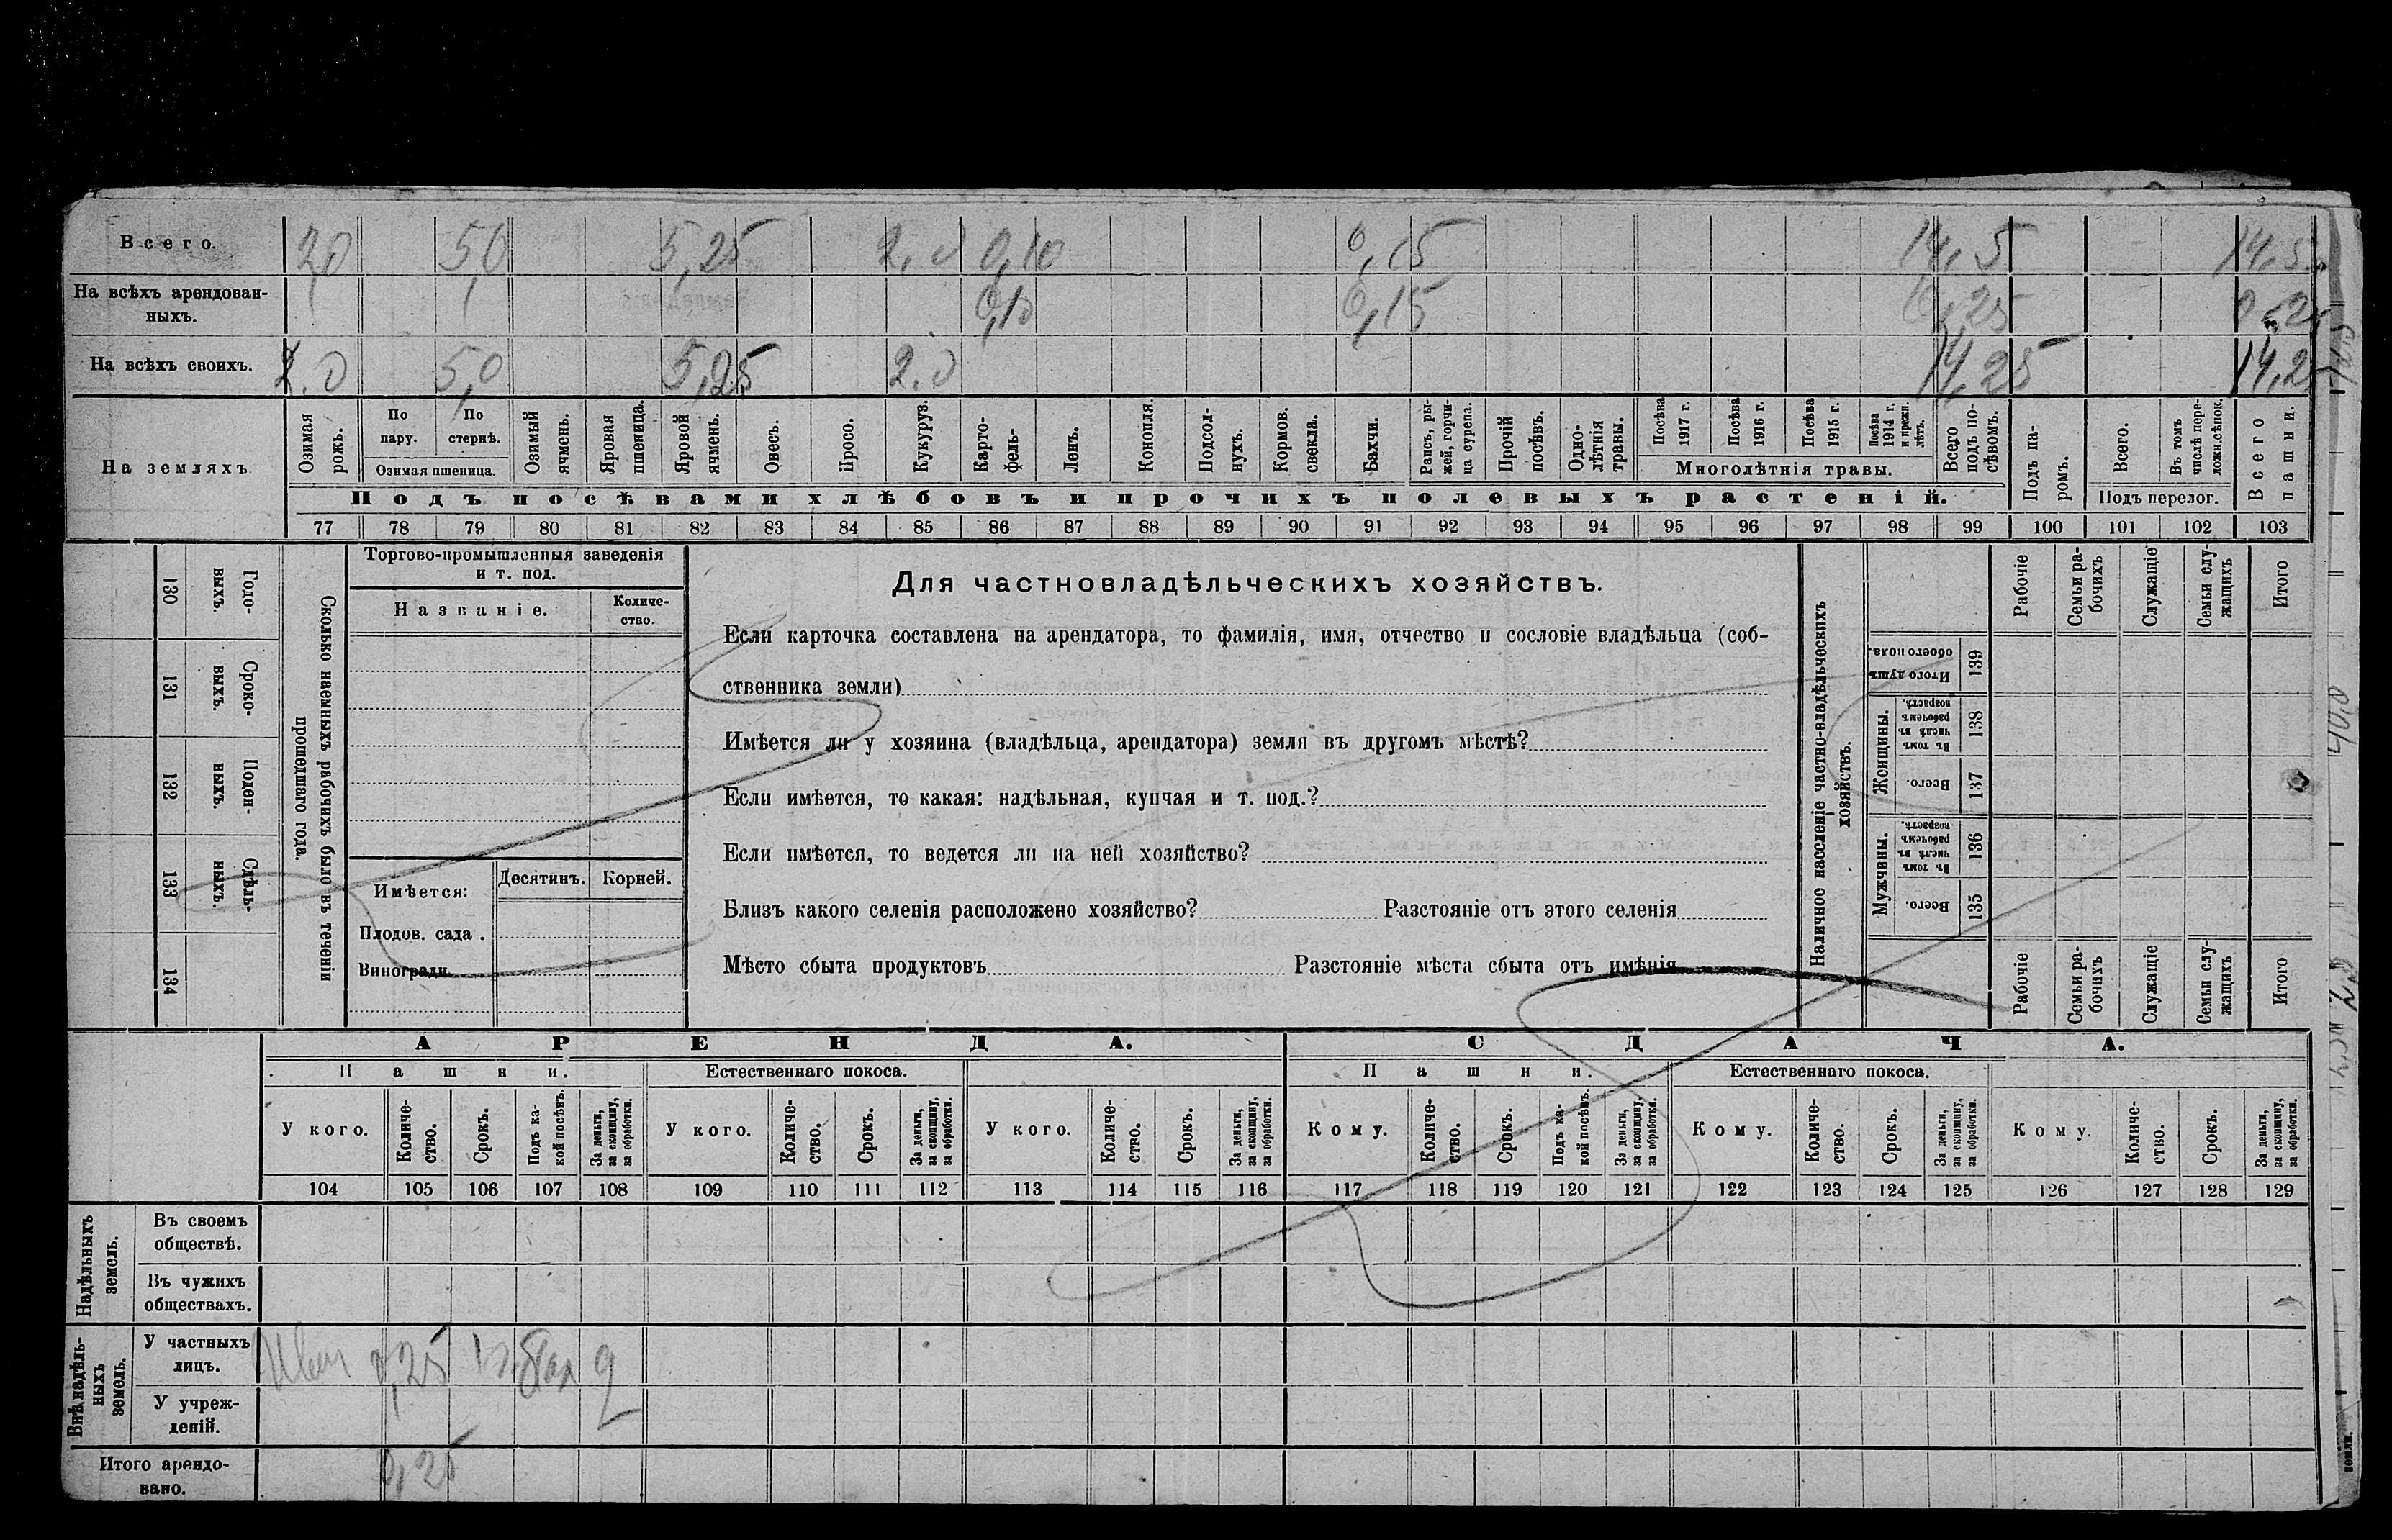 Всего. 2,0 5,0 5,25 2,0 0,10 0,15 14,5 14,5
На всѣхъ арендован-
ныхъ. 0,10 0,15 0,25 0,25
На всѣхъ своихъ. 2.0 5,0 5,25 2.0 14,25 14,25
На земляхъ
Озимая рожь.
По пару.
По стернѣ.
Озимая пшеница.
Озимый ячмень.
Яровая пшеница.
Яровой ячмень.
Овесъ.
Просо.
Кукуруз.
Карто-
фель-
Ленъ.
Конопля.
Подсол-
нухъ.
Кормов. свекла.
Бахчи.
Рапсъ, ры-
жей, горчи-
ца сурепа.
Прочій посѣвъ.
Одно-
лѣтнія травы.
Посѣва 1917 г.
Посѣва 1916 г.
Посѣва 1915 г.
Посѣва 1914 г. и прежн. лѣтъ.
Многолѣтнія травы.
Всего подъ по-
сѣвомъ.
Подъ па-
ромъ.
Всего.
Въ томъ числѣ пере-
ложн. сѣнок.
Подъ перелог.
Всего пашни.
Подъ посѣвами хлѣбовъ и прочихъ полевыхъ растеній.
77 78 79 80 81 82 83 84 85 86 87 88 89 90 91 92 93 94 95 96 97 98 99 100 101 102 103
130 Годо-
выхъ.
131 Сроко-
выхъ.
132 Поден-
ныхъ.
133 Сдѣль-
ныхъ.
134
Сколько наемныхъ рабочихъ было въ теченіи
прошедшаго года.
Торгово-промышленныя заведенія
и т. под.
Названіе. Количе-
ство.
Имѣется: Десятинъ. Корней.
Плодов. сада .
Виноградн.
Для частновладѣльческихъ хозяйствъ.
Если карточка составлена на арендатора, то фамилія, имя, отчество и сословіе владѣльца (соб-
ственника земли)
Имѣется ли у хозяина (владѣльца, арендатора) земля въ другомъ мѣстѣ?
Если имѣется, то какая: надѣльная, купчая и т. под.?
Если имѣется, то ведется ли на ней хозяйство?
Близъ какого селенія расположено хозяйство? Разстояніе отъ этого селенія
Мѣсто сбыта продуктовъ Разстояніе мѣста сбыта отъ имѣнія
Наличное населеніе частно-владѣльческихъ
хозяйствъ.
Рабочіе
Семьи ра-
бочихъ
Служащіе
Семьи слу-
жащихъ
Итого
Итого душъ обоего пола. 139
Женщины.
Въ томъ числѣ въ рабочемъ возрастѣ. 138
Всего. 137
Мужчины.
Въ томъ числѣ въ рабочемъ возрастѣ. 136
Всего. 135
Рабочіе
Семьи ра-
бочихъ
Служащіе
Семьи слу-
жащихъ
Итого
40,0
АРЕНДА. СДАЧА.
Пашни. Естественнаго покоса. Пашни. Естественнаго покоса.
У кого.
Количе-
ство.
Срокъ.
Подъ ка-
кой посѣвъ.
За деньги, за скопщину, за обработки.
У кого.
Количе-
ство.
Срокъ.
За деньги, за скопщину, за обработки.
У кого.
Количе-
ство.
Срокъ.
За деньги, за скопщину, за обработки.
Кому.
Количе-
ство.
Срокъ.
Подъ ка-
кой посѣвъ.
За деньги, за скопщину, за обработки.
Кому.
Количе-
ство.
Срокъ.
За деньги, за скопщину, за обработки.
Кому.
Количе-
ство.
Срокъ.
За деньги, за скопщину, за обработки.
104 105 106 107 108 109 110 111 112 113 114 115 116 117 118 119 120 121 122 123 124 125 126 127 128 129
Надѣльныхъ земель.
Въ своемъ
обществѣ.
Въ чужихъ
обществахъ.
Внѣнадѣль-
ныхъ земель.
У частныхъ
лицъ. 0,25
У учреж-
деній.
Итого арендо-
вано. 0,25
земли.